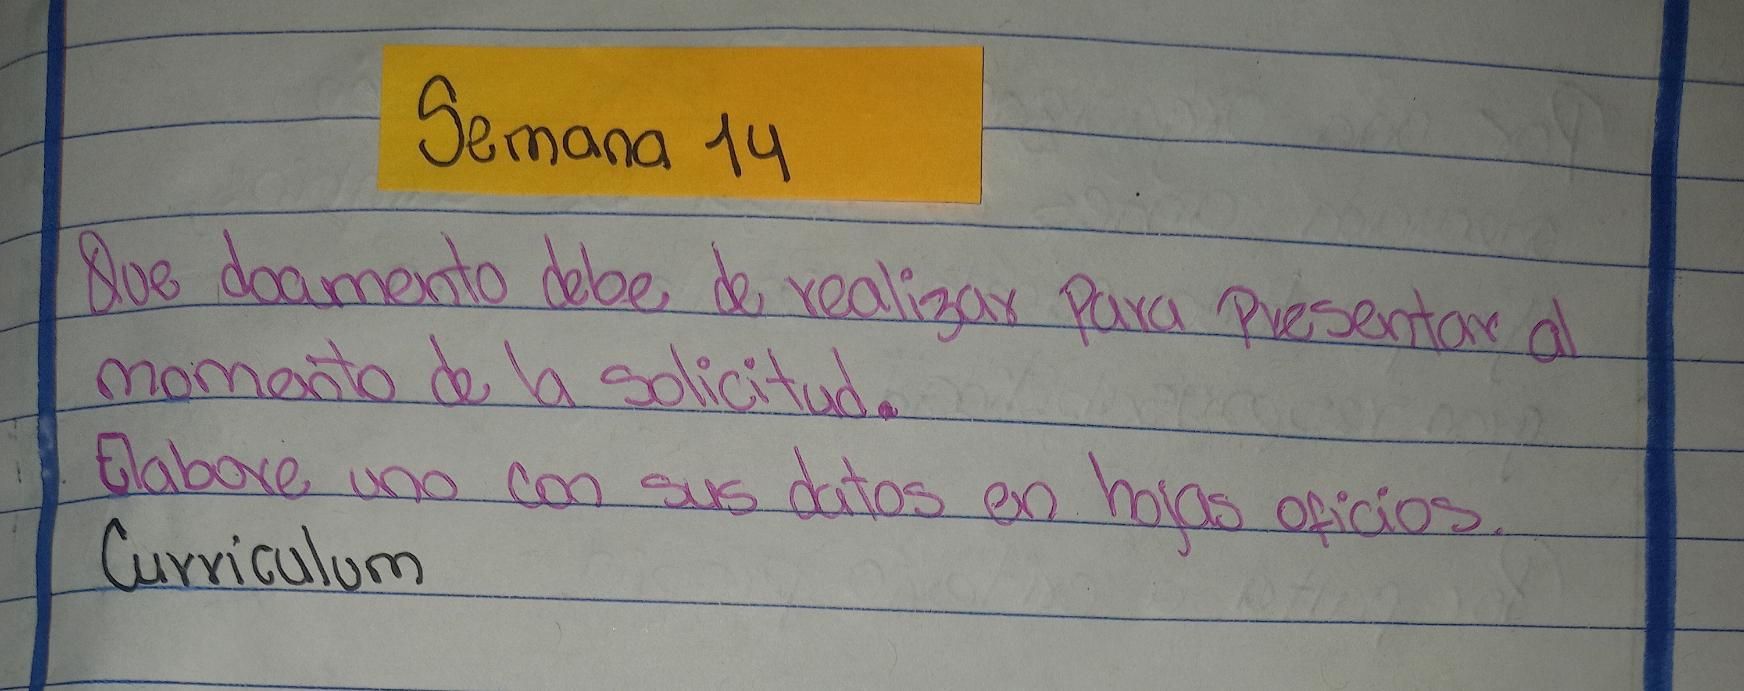 Semana 14
Que documento debe de realizar para presentar al
momento de la solicitud.
Elabore uno con sus datos en hojas oficios.
Curriculum